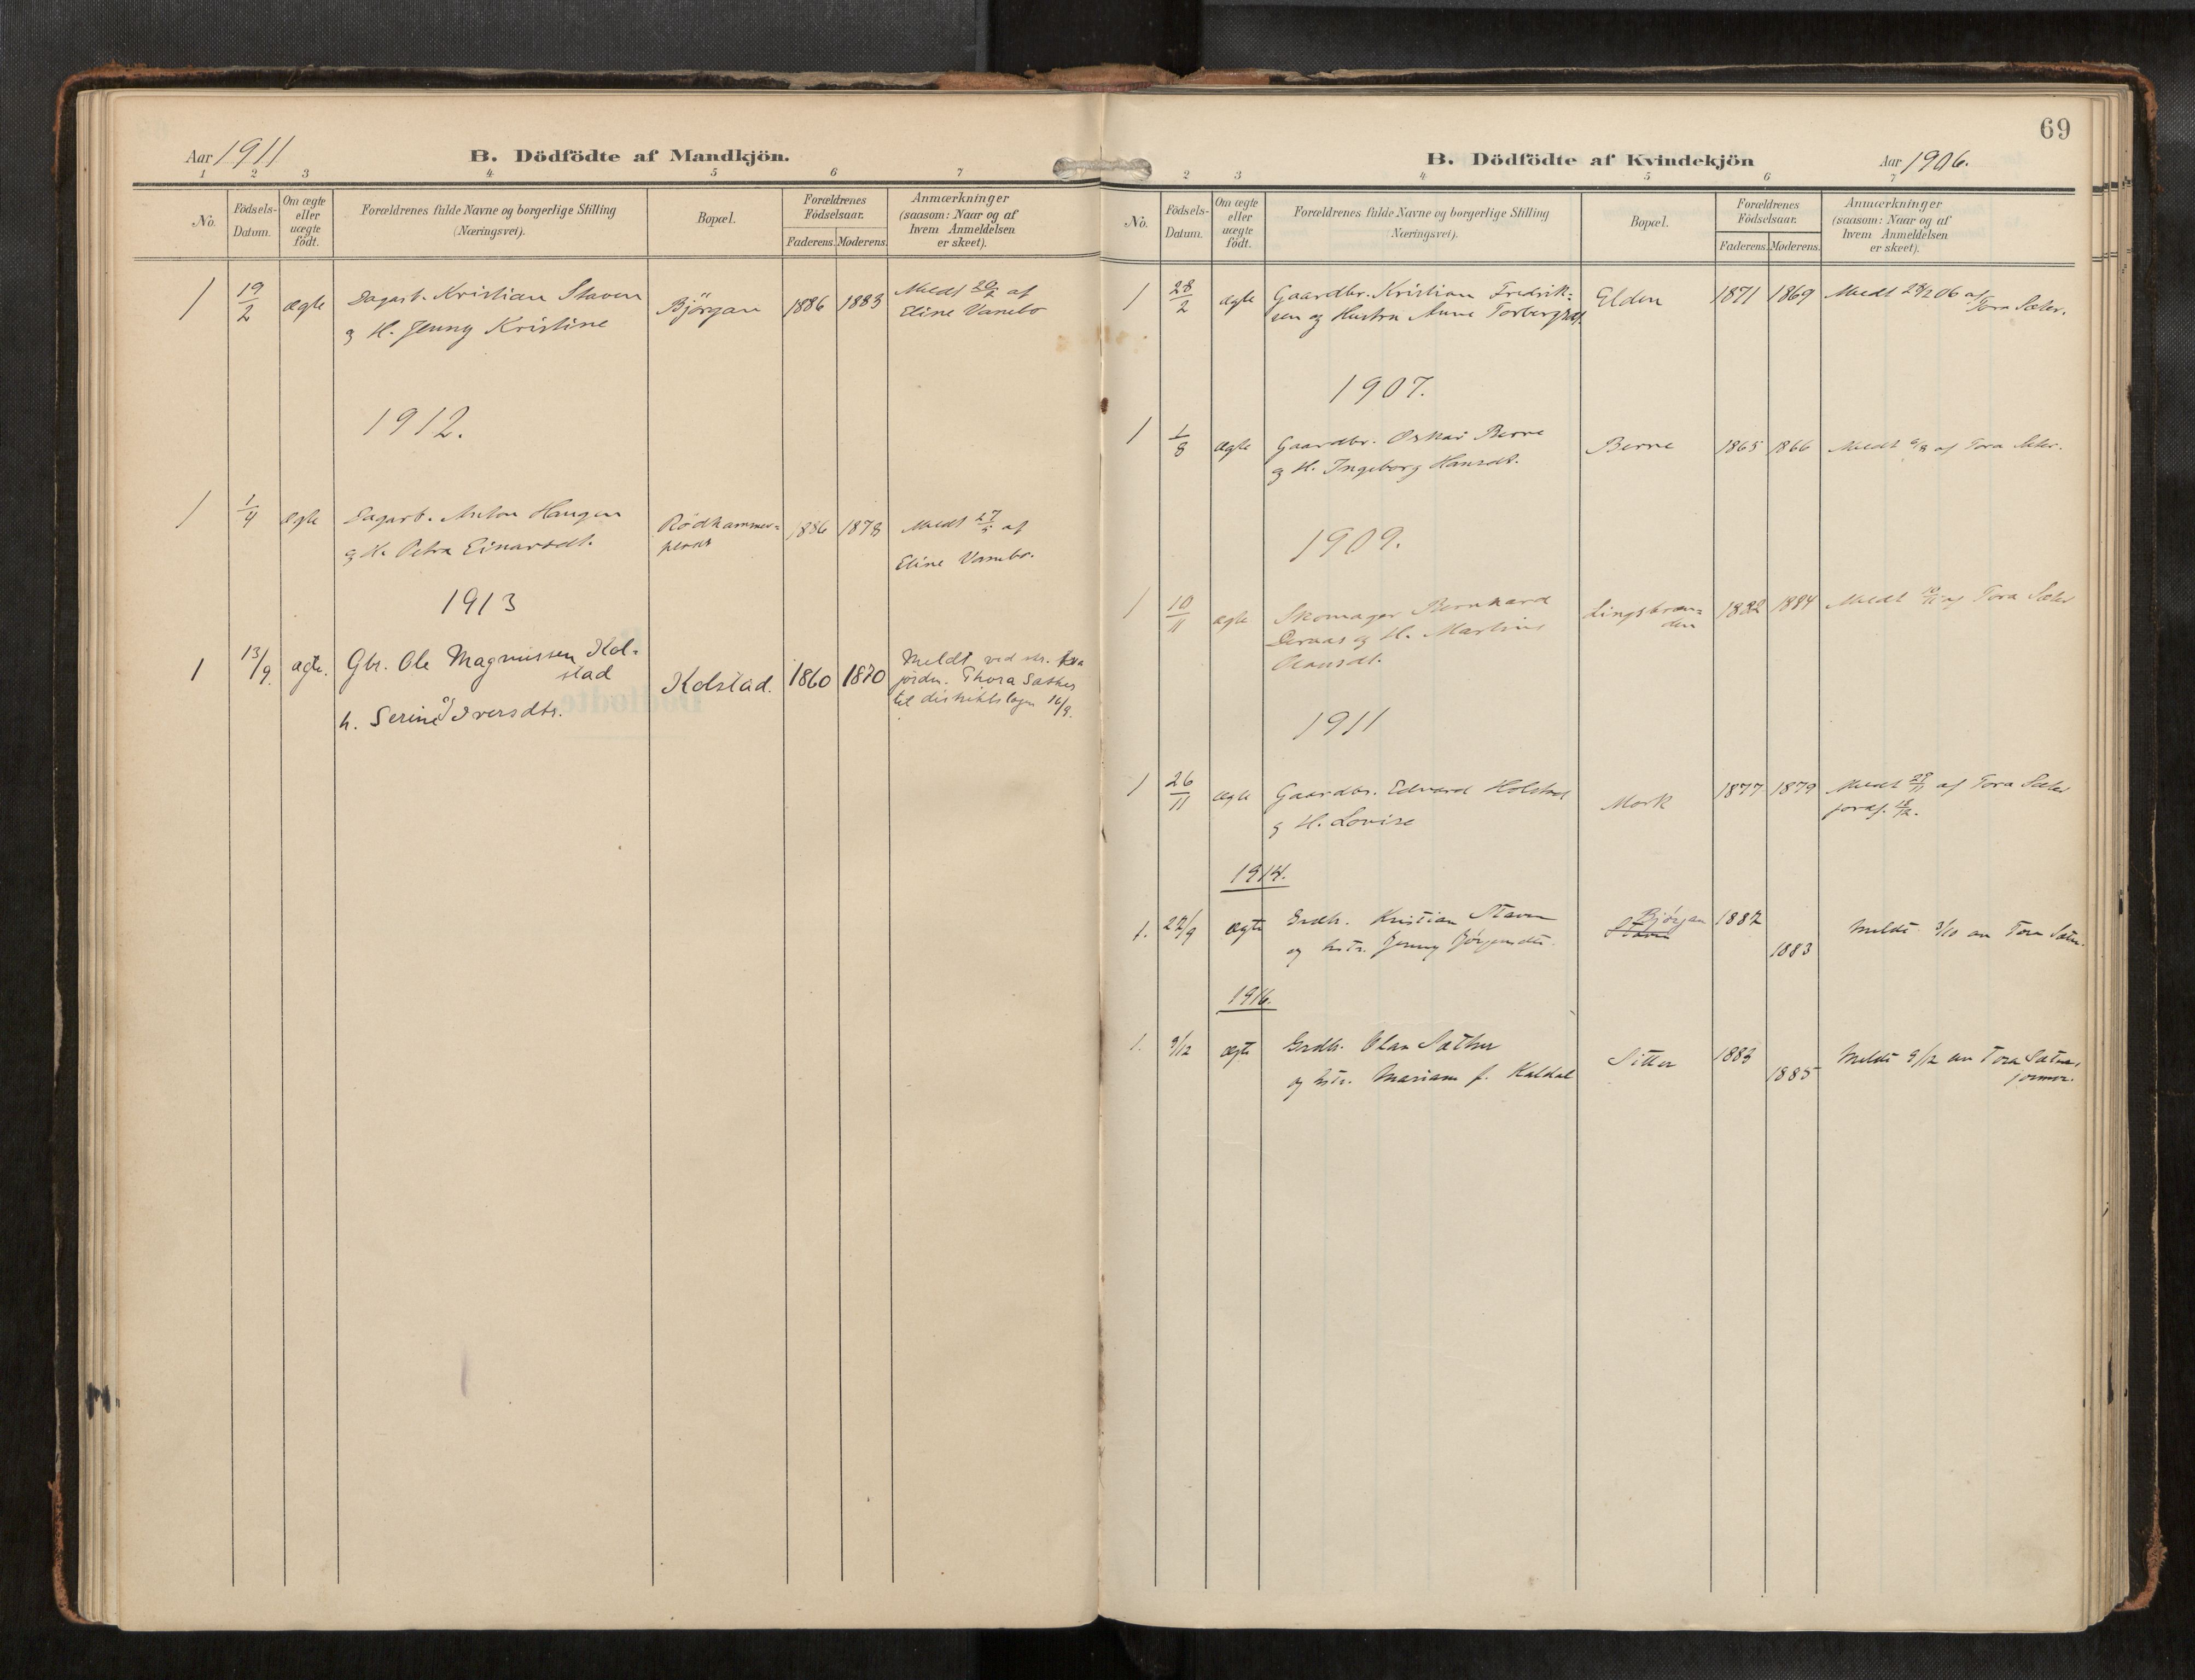 Aar 1911
B. Dödfödte af Mandkjön.
1 2 3 4 5 6 7
No.
Födsels-Datum.
Om ægte eller uægte födt.
Forældrenes fulde Navne og borgerlige Stilling
(Næringsvei).
Bopæl.
Forældrenes Födselsaar.
Faderens. Moderens.
Anmærkninger
(saasom: Naar og af
hvem Anmeldelsen
er skeet).
1 19/2 ægte Dagarb. Kristian Staven Björgan 1886 1883 Meldt 20/2 af
& H. Jenny Kristine Eline Vambo
1912.
1 1/4 ægte Dagarb. Anton Haugen Rödhammer= 1886 1878 Meldt 27/5 af
& H. Petra Einarsdt. plads Eline Vambo.
1913
1 13/9. ægte. Gbr. Ole Magnussen Kol- Kolstad. 1860 1870 Meldt ved
stad jordm. Thora Sæther
og
h. Serine Iversdtr. til distriktslægen 16/9.
69
B. Dödfödte af Kvindekjön
Aar 1906.
2 3 4 5 6 7
No.
Födsels-Datum.
Om ægte eller uægte födt.
Forældrenes fulde Navne og borgerlige Stilling
(Næringsvei).
Bopæl.
Forældrenes Födselsaar.
Faderens. Moderens.
Anmærkninger
(saasom: Naar og af
hvem Anmeldelsen
er skeet).
1 28/2 ægte Gaardbr. Kristian Fredrik= Elden 1871 1869 Meldt 28/2 06 af
sen og Hustru Anne Torbergsdt. Tora Sæter.
1907.
1 1/8 ægte Gaardbr. Oskar Berre Berre 1865 1866 Meldt af Tora Sæter.
& H. Ingeborg Hansdt.
1909.
1 10/11 ægte Skomager Bernhard 1882 1884 Meldt af Tora Sæter
Deraas og H. Martine
1911
1 26/11 ægte Gaardbr. Edvard Holstad Mork 1877 1879 Meldt 28/11 af Tora Sæter
& H. Lovise
1914.
1. 27/9 ægte Grdbr. Kristian Staven Björgan 1887 Meldt 3/10 av Tora Sæter.
og hstr. Jenny Jörgensdtr. 1883
1916.
1. 9/12 ægte Grdbr. Olav Sæther Sitter 1883 Meldt 9/12 av Tora Sæter,
og hstr. Mariane f. Kaldal 1885 jormor.